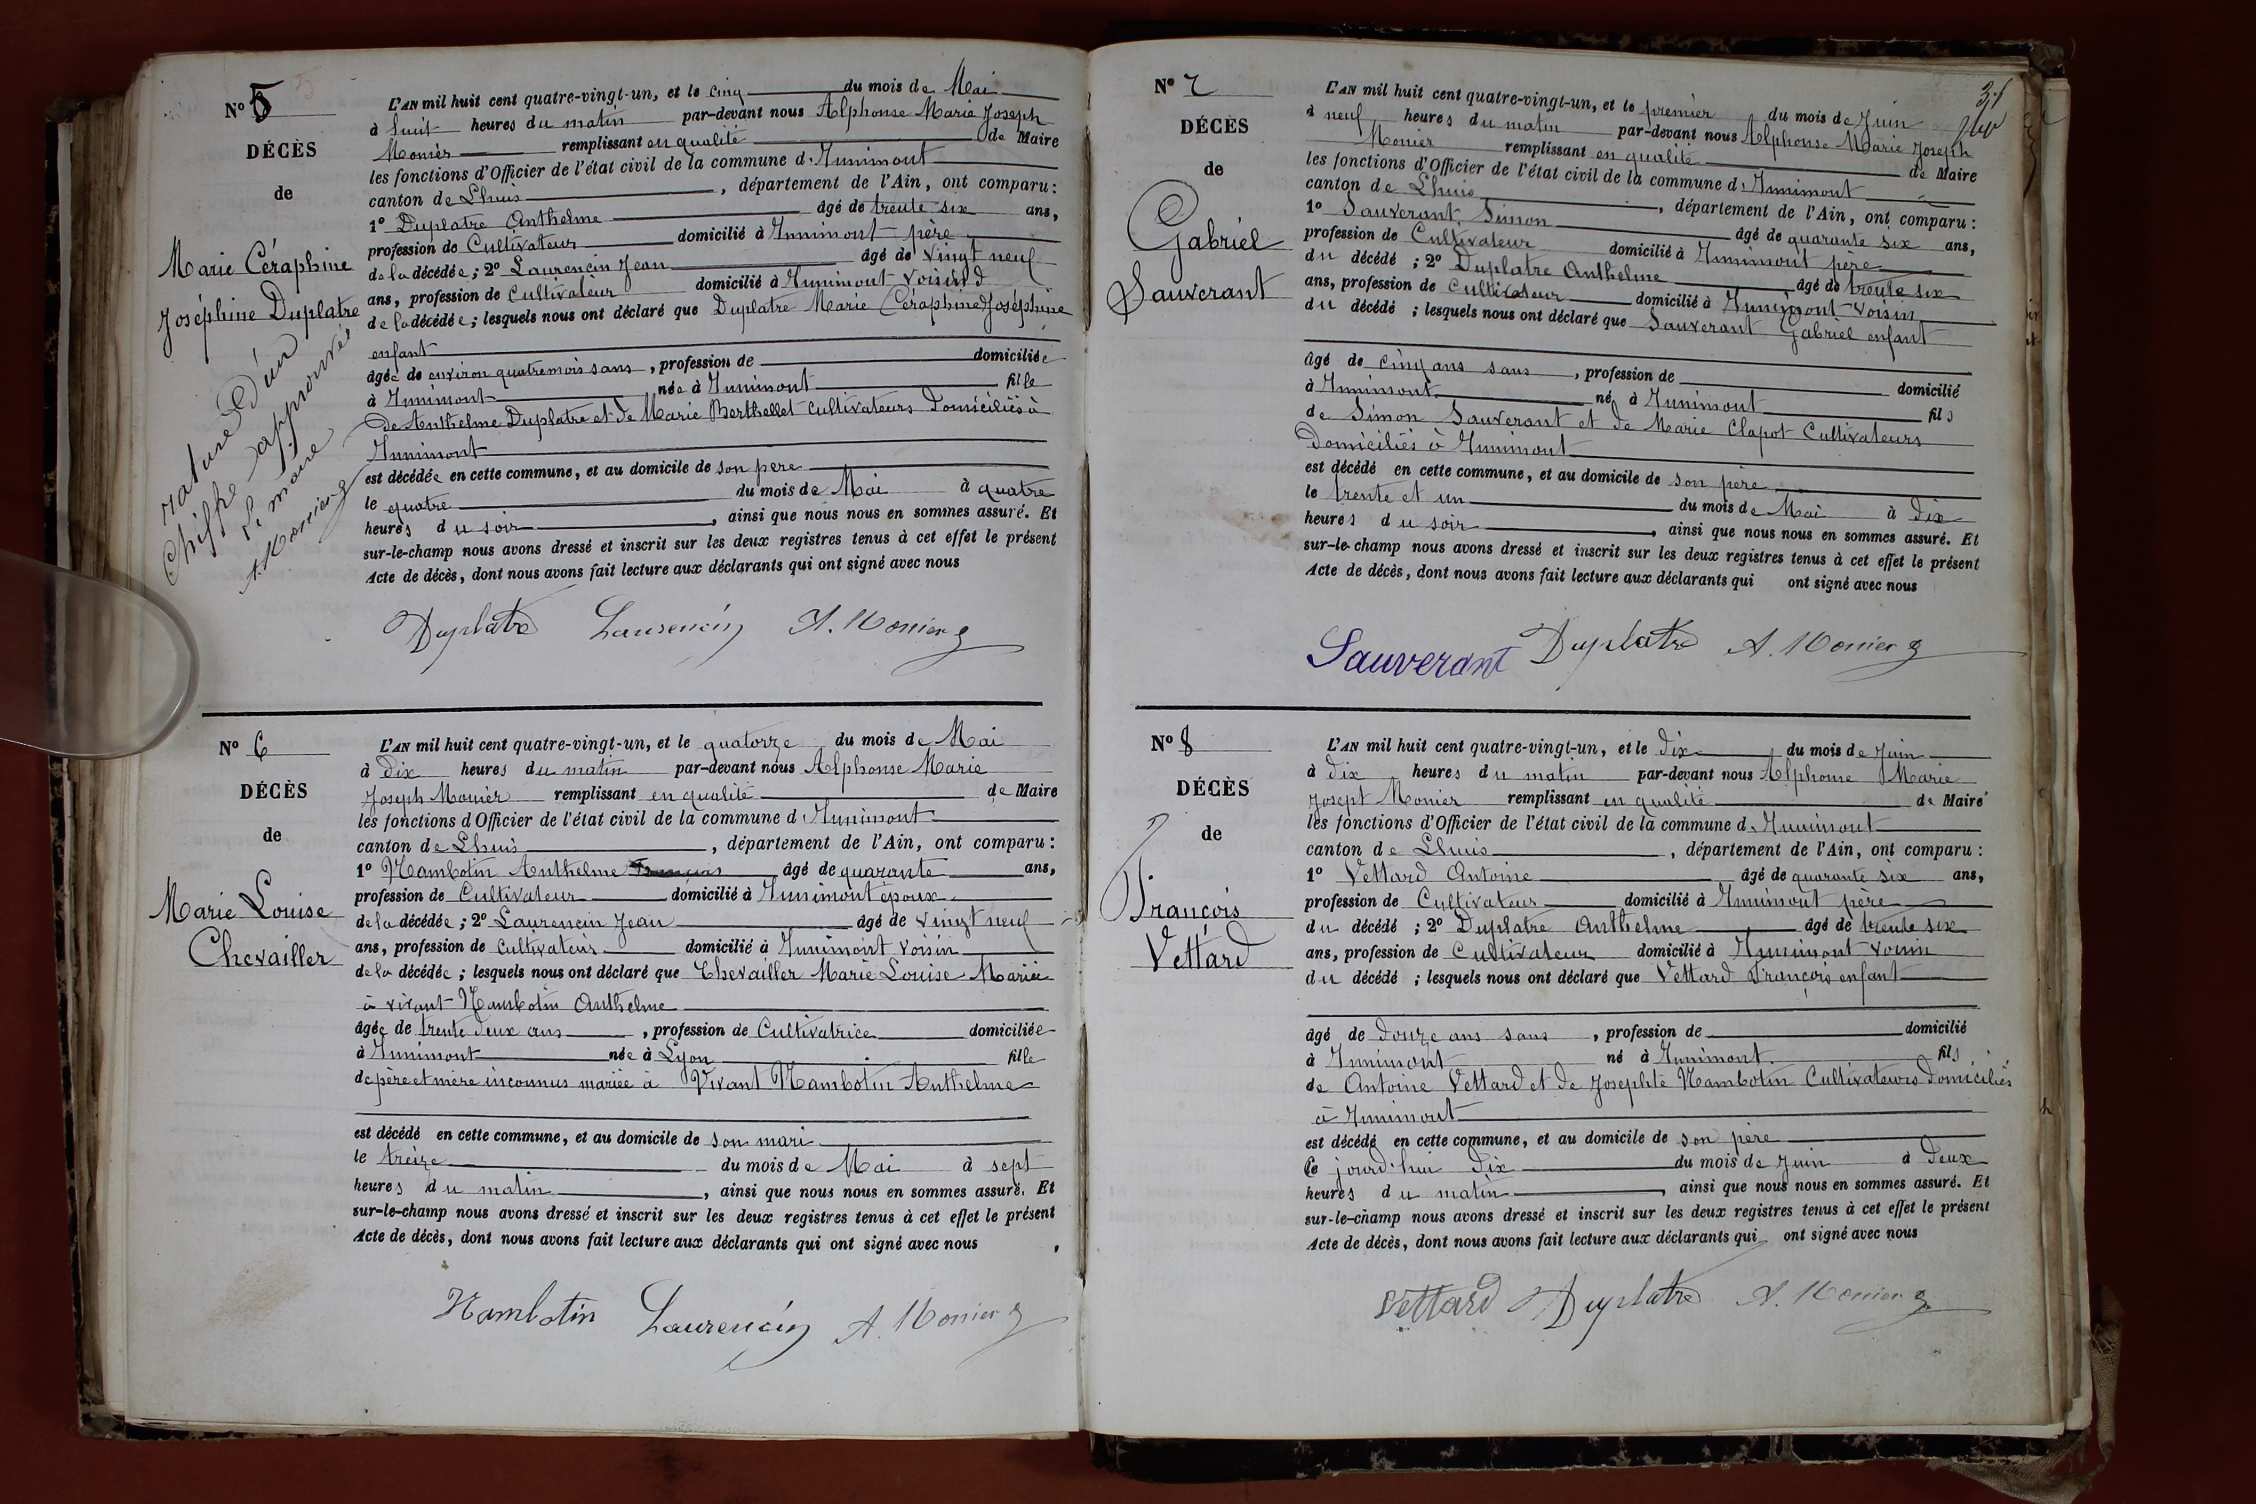 N° 5
DÉCÈS
de
Marie Céraphine
Joséphine Duplatre
rature d'un
chiffre approuvée
le maire
A. Monier
L'AN mil huit cent quatre-vingt-un, et le cinq du mois de Mai
à huit heures du matin par-devant nous Alphonse Marie Joseph
Monier remplissant en qualité de Maire
les fonctions d'Officier de l'état civil de la commune d'Innimont
canton de Lhuis, département de l'Ain, ont comparu :
1° Duplatre Anthelme âgé de trente-six ans,
profession de Cultivateur domicilié à Innimont père
de la décédée ; 2° Laurencin Jean âgé de vingt neuf
ans, profession de Cultivateur domicilié à Innimont voisin d
de la décédée ; lesquels nous ont déclaré que Duplatre Marie Céraphine Joséphine
enfant
âgée de environ quatre mois sans, profession de domiciliée
à Innimont née à Innimont fille
de Anthelme Duplatre et de Marie Berthellet Cultivateurs domiciliés à
Innimont
est décédée en cette commune, et au domicile de son père
le quatre du mois de Mai à quatre
heures du soir, ainsi que nous nous en sommes assuré. Et
sur-le-champ nous avons dressé et inscrit sur les deux registres tenus à cet effet le présent
Acte de décès, dont nous avons fait lecture aux déclarants qui ont signé avec nous
Duplatre Laurencin A. Monier
N° 6
DÉCÈS
de
Marie Louise
Chevailler
L'AN mil huit cent quatre-vingt-un, et le quatorze du mois de Mai
à dix heures du matin par-devant nous Alphonse Marie
Joseph Monier remplissant en qualité de Maire
les fonctions d'Officier de l'état civil de la commune d'Innimont
canton de Lhuis, département de l'Ain, ont comparu :
1° Nambotin Anthelme âgé de quarante ans,
profession de Cultivateur domicilié à Innimont époux
de la décédée ; 2° Laurencin Jean âgé de vingt neuf
ans, profession de Cultivateur domicilié à Innimont voisin
de la décédée ; lesquels nous ont déclaré que Chevailler Marie Louise Mariée
à vivant Nambotin Anthelme
âgée de trente deux ans, profession de Cultivatrice domiciliée
à Innimont née à Lyon fille
de père et mère inconnus mariée à Vivant Nambotin Anthelme
est décédé en cette commune, et au domicile de son mari
le treize du mois de Mai à sept
heures du matin, ainsi que nous nous en sommes assuré. Et
sur-le-champ nous avons dressé et inscrit sur les deux registres tenus à cet effet le présent
Acte de décès, dont nous avons fait lecture aux déclarants qui ont signé avec nous
Nambotin Laurencin A. Monier
31
N° 7
DÉCÈS
de
Gabriel
Sauverant
L'AN mil huit cent quatre-vingt-un, et le premier du mois de Juin
à neuf heures du matin par-devant nous Alphonse Marie Joseph
Monier remplissant en qualité de Maire
les fonctions d'Officier de l'état civil de la commune d'Innimont
canton de Lhuis, département de l'Ain, ont comparu :
1° Sauverant Simon âgé de quarante six ans,
profession de Cultivateur domicilié à Innimont père
du décédé ; 2° Duplatre Anthelme âgé de trente six
ans, profession de Cultivateur domicilié à Innimont voisin
du décédé ; lesquels nous ont déclaré que Sauverant Gabriel enfant
âgé de cinq ans sans, profession de domicilié
à Innimont né à Innimont fils
de Simon Sauverant et de Marie Clapot Cultivateurs
Domiciliés à Innimont
est décédé en cette commune, et au domicile de son père
le trente et un du mois de Mai à dix
heures du soir, ainsi que nous nous en sommes assuré. Et
sur-le-champ nous avons dressé et inscrit sur les deux registres tenus à cet effet le présent
Acte de décès, dont nous avons fait lecture aux déclarants qui ont signé avec nous
Sauverant Duplatre A. Monier
N° 8
DÉCÈS
de
François
Vettard
L'AN mil huit cent quatre-vingt-un, et le dix du mois de Juin
à dix heures du matin par-devant nous Alphonse Marie
Josept Monier remplissant en qualité de Maire
les fonctions d'Officier de l'état civil de la commune d'Innimont
canton de Lhuis, département de l'Ain, ont comparu :
1° Vettard Antoine âgé de quarante six ans,
profession de Cultivateur domicilié à Innimont père
du décédé ; 2° Duplatre Anthelme âgé de trente six
ans, profession de Cultivateur domicilié à Innimont voisin
du décédé ; lesquels nous ont déclaré que Vettard François enfant
âgé de douze ans sans, profession de domicilié
à Innimont né à Innimont fils
de Antoine Vettard et de Josephte Nambotin Cultivateurs domiciliés
à Innimont
est décédé en cette commune, et au domicile de son père
Ce jourd'hui dix du mois de Juin à deux
heures du matin, ainsi que nous nous en sommes assuré. Et
sur-le-champ nous avons dressé et inscrit sur les deux registres tenus à cet effet le présent
Acte de décès, dont nous avons fait lecture aux déclarants qui ont signé avec nous
Vettard Duplatre A. Monier